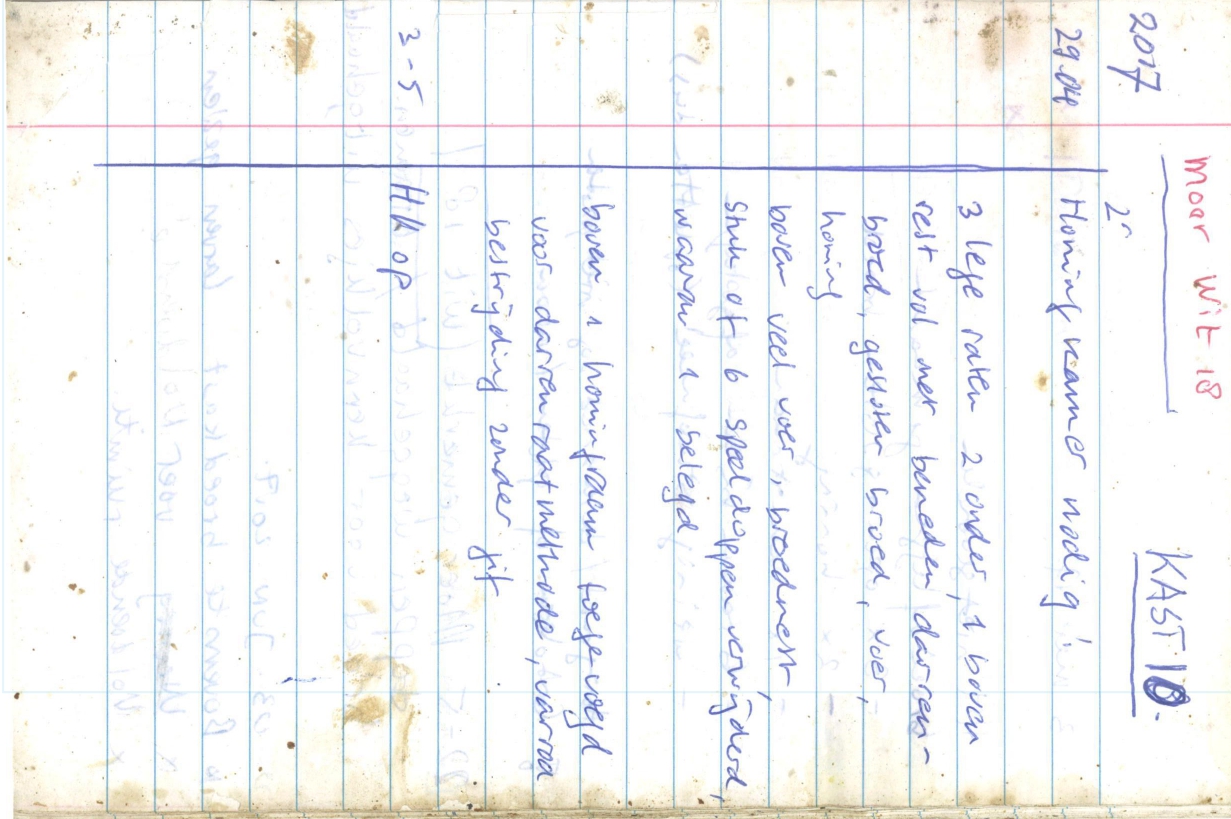 moar wit 18
KAST 10.
2017
2e
29.04 Honingkamer nodig!
3 lege raten 2 onder, 1 boven
rest vol met beneden darren-
broed, gesloten broed, voer,
honing
boven veel voer, broednest
stuk of 6 speeldoppen verwijderd,
waarvan 1 belegd
boven 1 honingraam toegevoegd
voor darrenraatmethode, varroa
bestrijding zonder gif
3-5 HK op